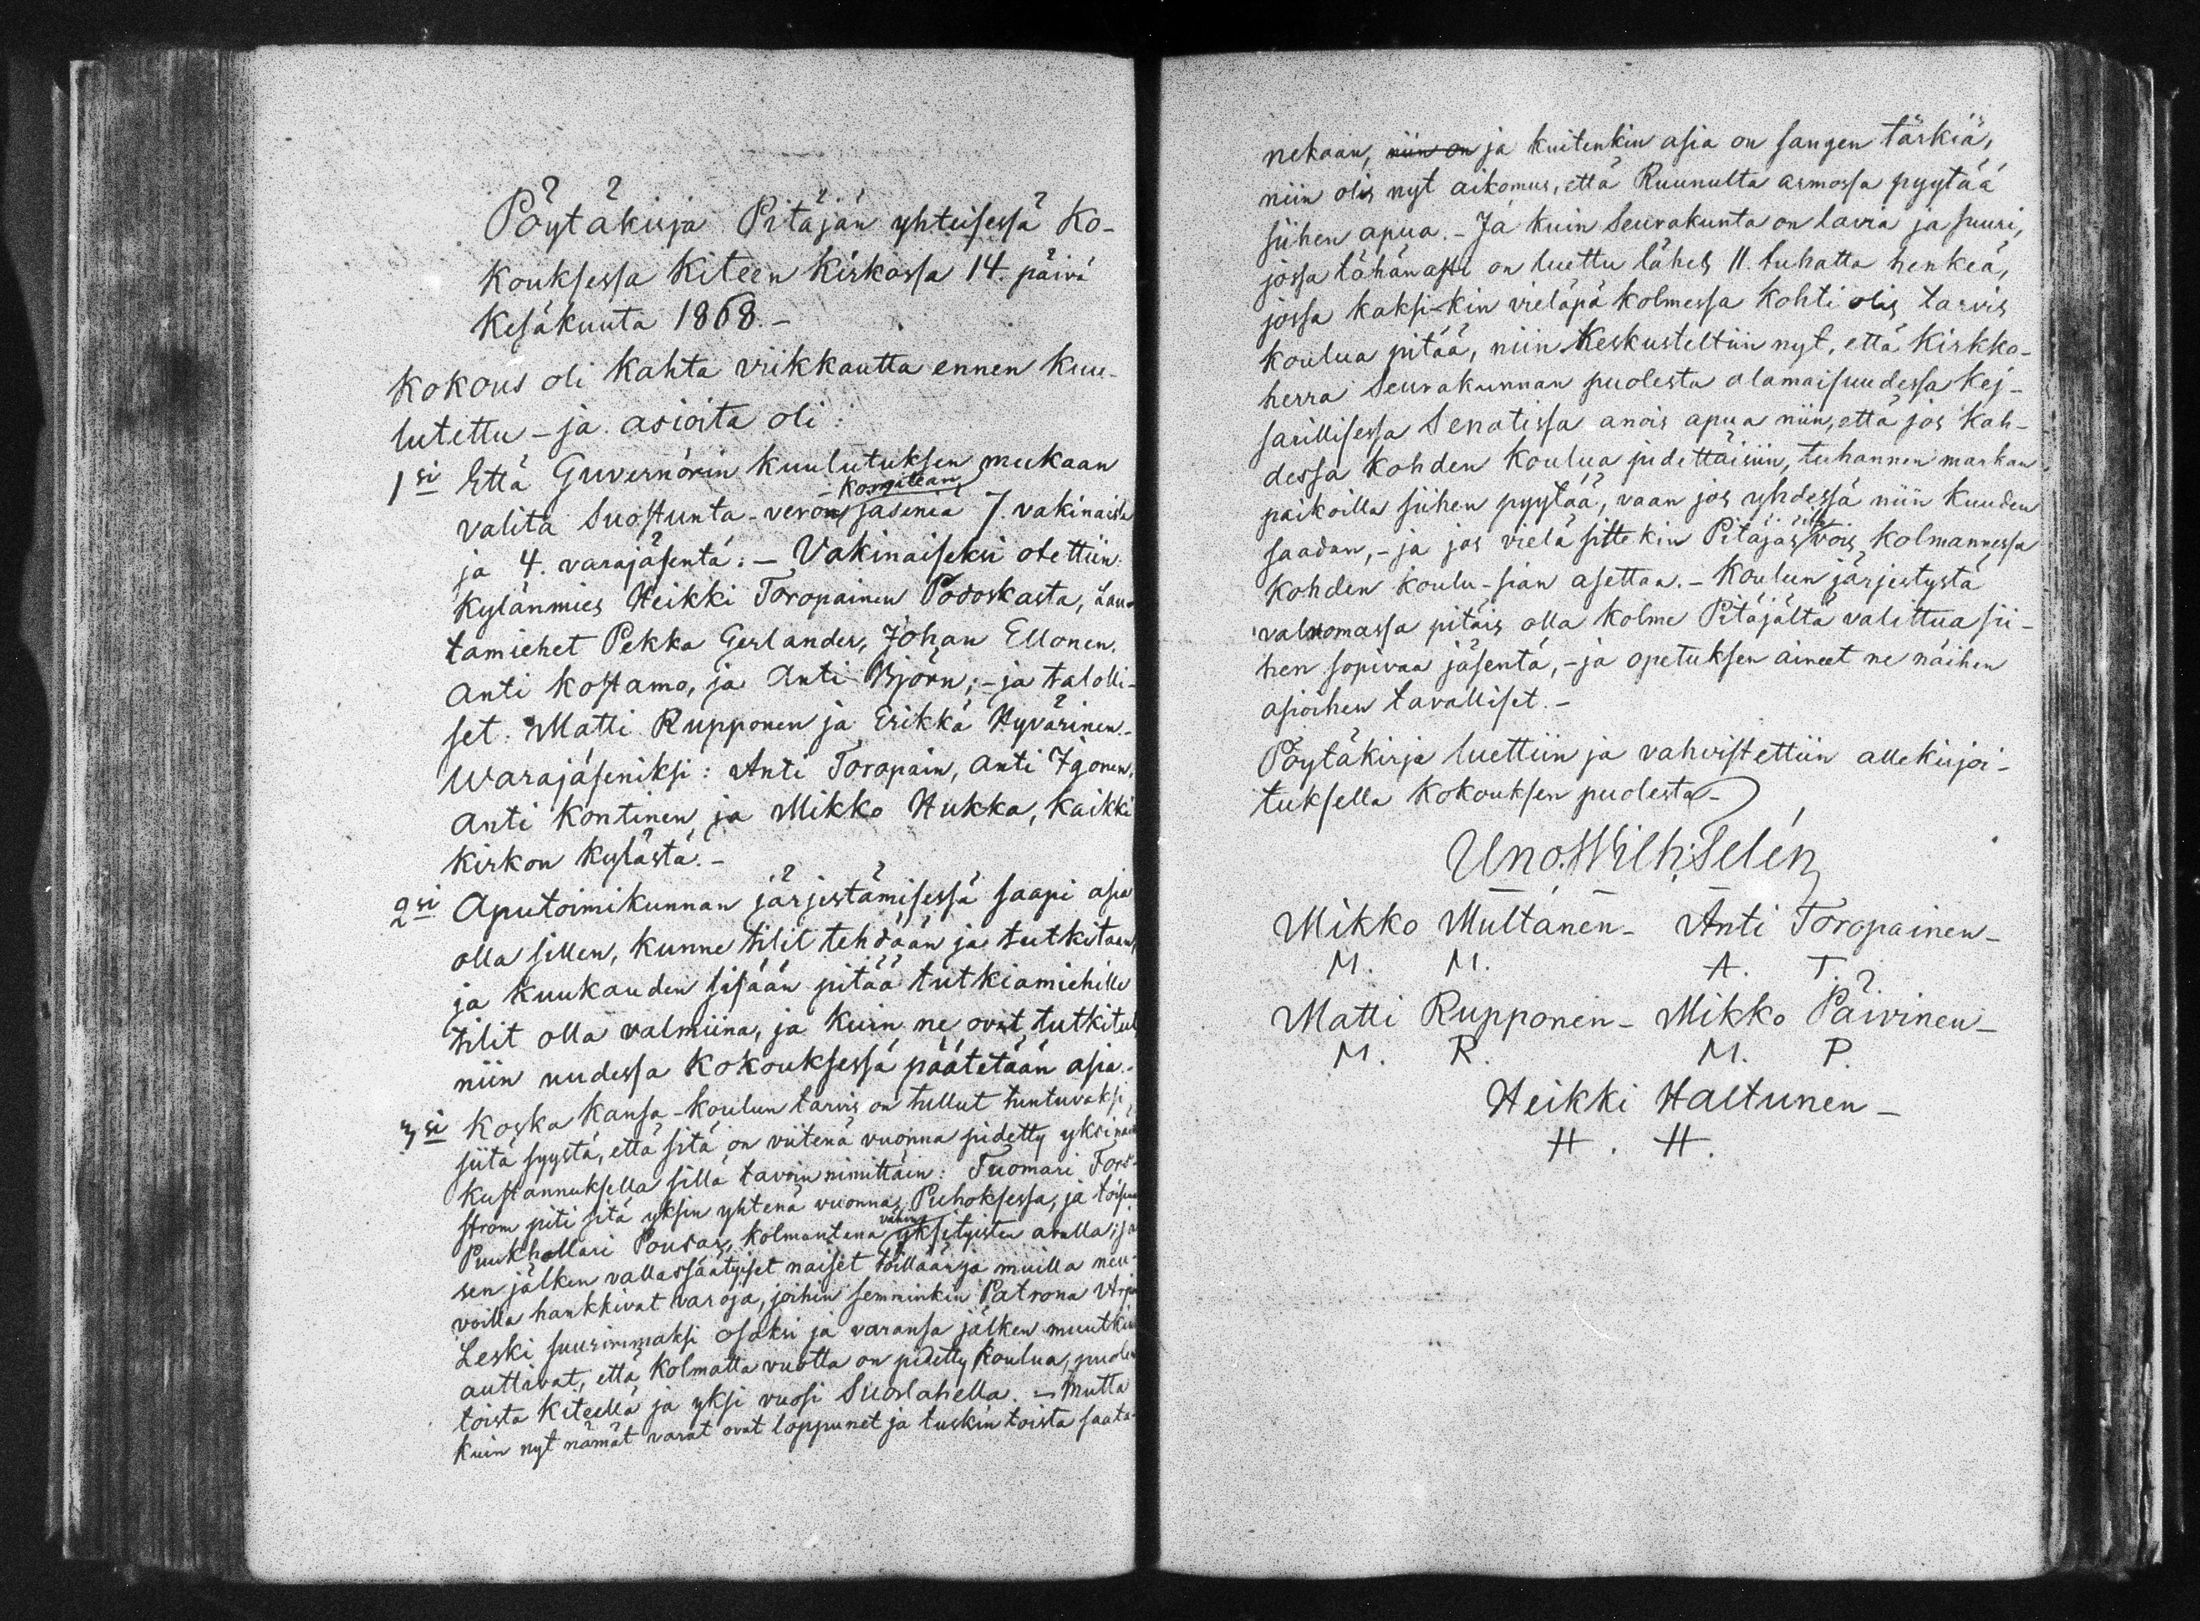 Pöytäkirja Pitäjän yhteisessä Ko-
kouksessa Kiteen Kirkossa 14. päivä
Kesäkuuta 1868.-
Kokous oli kahta viikkautta ennen kuu-
lutettu - ja asioita oli:
1si Että Guvernörin kuulutuksen mukaan
valita Suostunta-veron -komitean jäseniä 7. vakinaista
ja 4. varajäsentä: - Vakinaiseksi otettiin:
Kylänmies Heikki Toropainen Podoskasta, Lau-
tamiehet Pekka Gerlander, Johan Ellonen,
Anti Kostamo, ja Anti Björn; - ja talolli-
set: Matti Rupponen ja Erikki Hyvärinen.-
Warajäseniksi: Anti Toropain, Anti Igonen,
Anti Kontinen ja Mikko Hukka, kaikki
Kirkon kylästä.-
2si Aputoimikunnan järjestämisessä saapi asia
olla sillen, kunne tilit tehdään ja tutkitaan,
ja kuukauden sisään pitää tutkiamiehille
tilit olla valmiina, ja kuin ne ovat tutkitut
niin uudessa Kokouksessa päätetään asia.-
3si Koska Kansa-koulun tarvis on tullut tuntuvaksi
siitä syystä, että sitä on viitenä vuonna pidetty
kustannuksella sillä tavoin nimittäin: Tuomari Fors-
ström piti sitä yksin yhtenä vuonna Puhoksessa, ja toisena
Puukhollari Pousar, kolmantena vähin yksityisten avulla; ja
sen jälken vallassäätyiset naiset töillään ja muilla neu-
voilla hankkivat varoja, joihin semminkin Patrona
Leski suurimmaksi osaksi ja varansa jälken muutkin
auttivat, että kolmatta vuotta on pidetty koulua, puolen
toista Kiteellä ja yksi vuosi Suorlahella. - Mutta
kuin nyt nämät varat ovat loppunet ja tuskin toista saata-
nekaan, niin on ja kuitenkin asia on sangen tärkiä,
niin olis nyt aikomus, että Ruunulta armossa pyytää
siihen apua. - Ja kuin Seurakunta on lavia ja suuri,
jossa tähän asti on luettu lähes 11. tuhatta henkeä,
jossa kaksi-kin vieläpä kolmessa kohti olis tarvis
koulua pitää, niin Keskusteltiin nyt, että Kirkko-
herra Seurakunnan puolesta alamaisuudessa Kej-
sarillisessa Senatissa anois apua niin, että jos kah-
dessa kohden koulua pidettäisiin, tuhannen markan
paikoilla siihen pyytää, vaan jos yhdessä niin kuuden
saadan, - ja jos vielä sittekin Pitäjäs vois kolmannessa
kohden koulu-sian asettaa. - Koulun järjestystä
valvomassa pitäis olla kolme Pitäjältä valittua sii-
hen sopivaa jäsentä, - ja opetuksen aineet ne näihen
asioihen tavalliset.-
Pöytäkirja luettiin ja vahvistettiin allekirjoi-
tuksella Kokouksen puolesta-
Uno. Wilh: Selén
Mikko Multanen- Anti Toropainen-
M. M. A. T.
Matti Rupponen- Mikko Päivinen-
M. R. M. P.
Heikki Haltunen-
H. H.